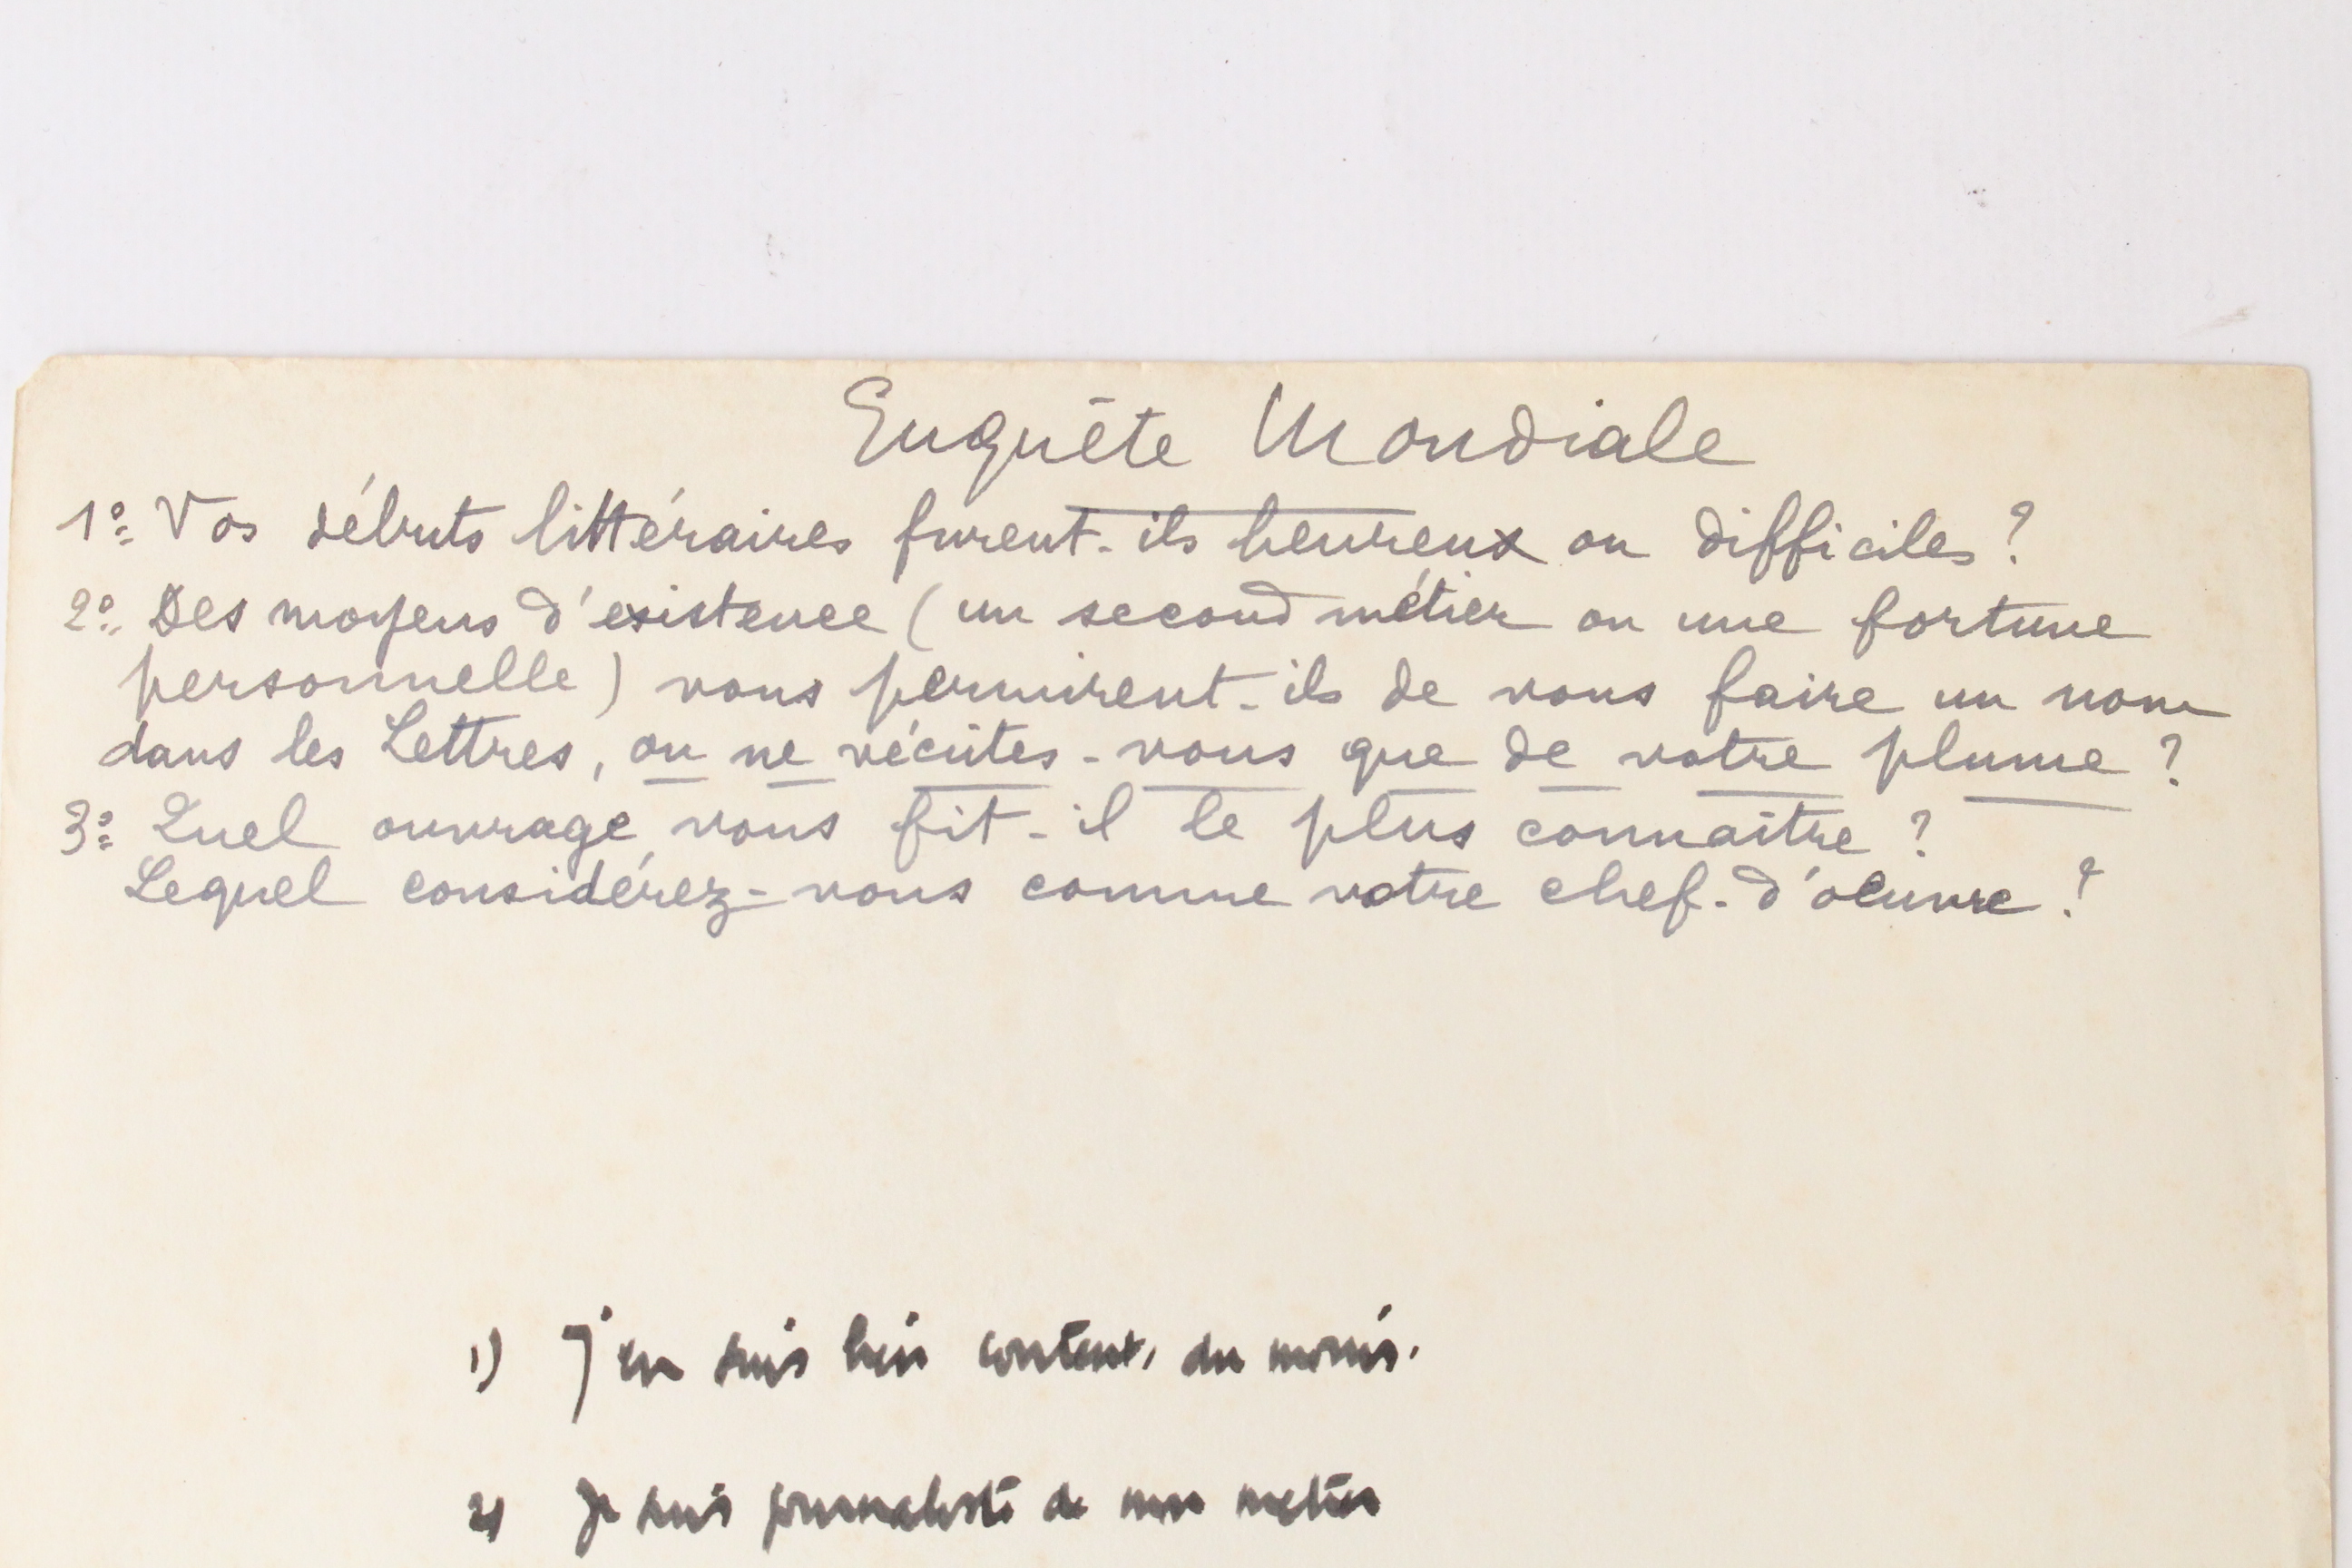 Enquête Mondiale
1º Vos débuts littéraires furent-ils heureux ou difficiles ?
2º Des moyens d'existence (un second métier ou une fortune
personnelle) vous permirent-ils de vous faire un nom
dans les Lettres, ou ne vécûtes-vous que de votre plume ?
3º Quel ouvrage vous fit-il le plus connaître ?
Lequel considérez-vous comme votre chef-d'oeuvre ?
1) J'en suis bien content, du moins.
2) Je suis journaliste de mon métier